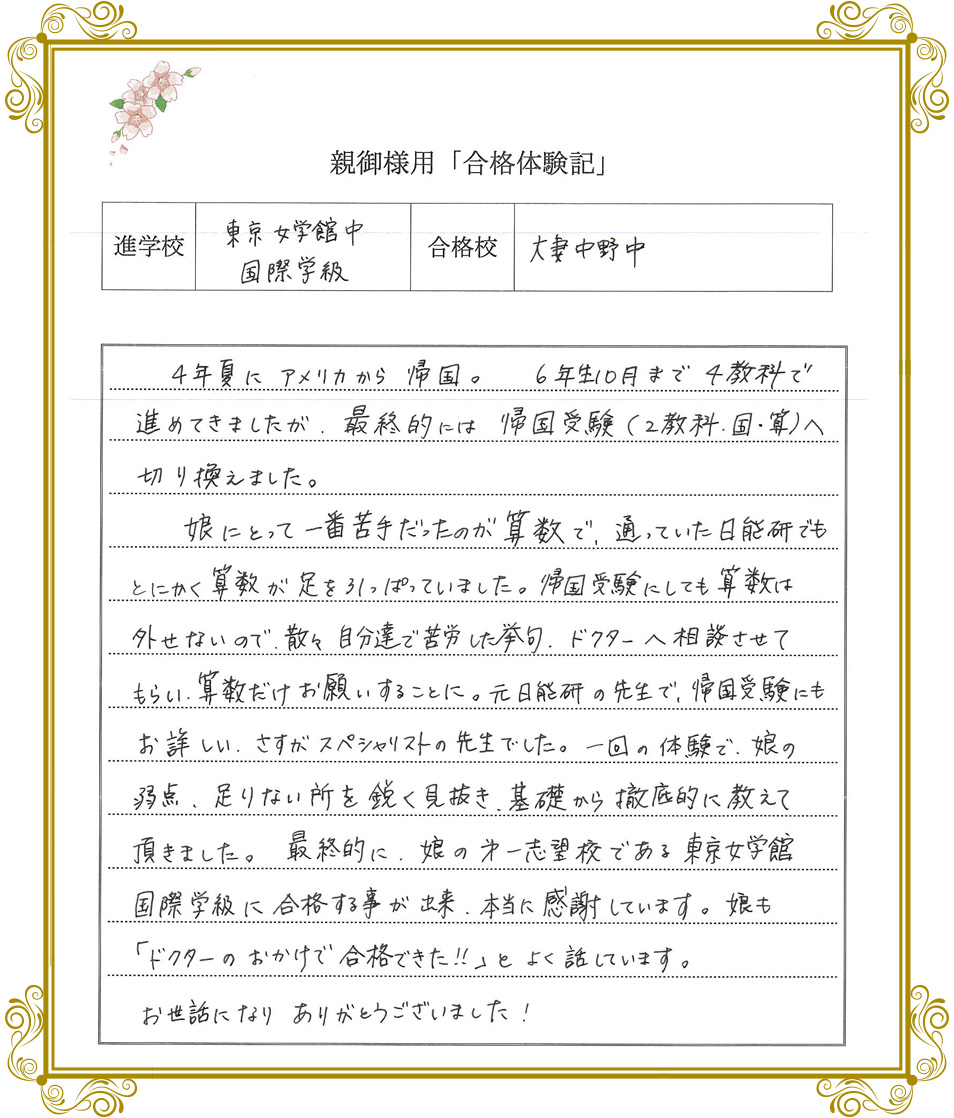 親御様用「合格体験記」
進学校 東京女学館中 国際学級 合格校 大妻中野中
4年夏に アメリカから 帰国。 6年生10月まで 4教科で
進めてきましたが、最終的には 帰国受験(2教科・国・算)へ
切り換えました。
娘にとって一番苦手だったのが算数で、通っていた日能研でも
とにかく算数が足を引っぱっていました。帰国受験にしても算数は
外せないので、散々自分達で苦労した挙句、ドクターへ相談させて
もらい、算数だけお願いすることに。元日能研の先生で、帰国受験にも
お詳しい、さすがスペシャリストの先生でした。一回の体験で、娘の
弱点、足りない所を鋭く見抜き、基礎から徹底的に教えて
頂きました。 最終的に、娘の第一志望校である東京女学館
国際学級に合格する事が出来、本当に感謝しています。娘も
「ドクターのおかげで合格できた!!」とよく話しています。
お世話になり ありがとうございました!